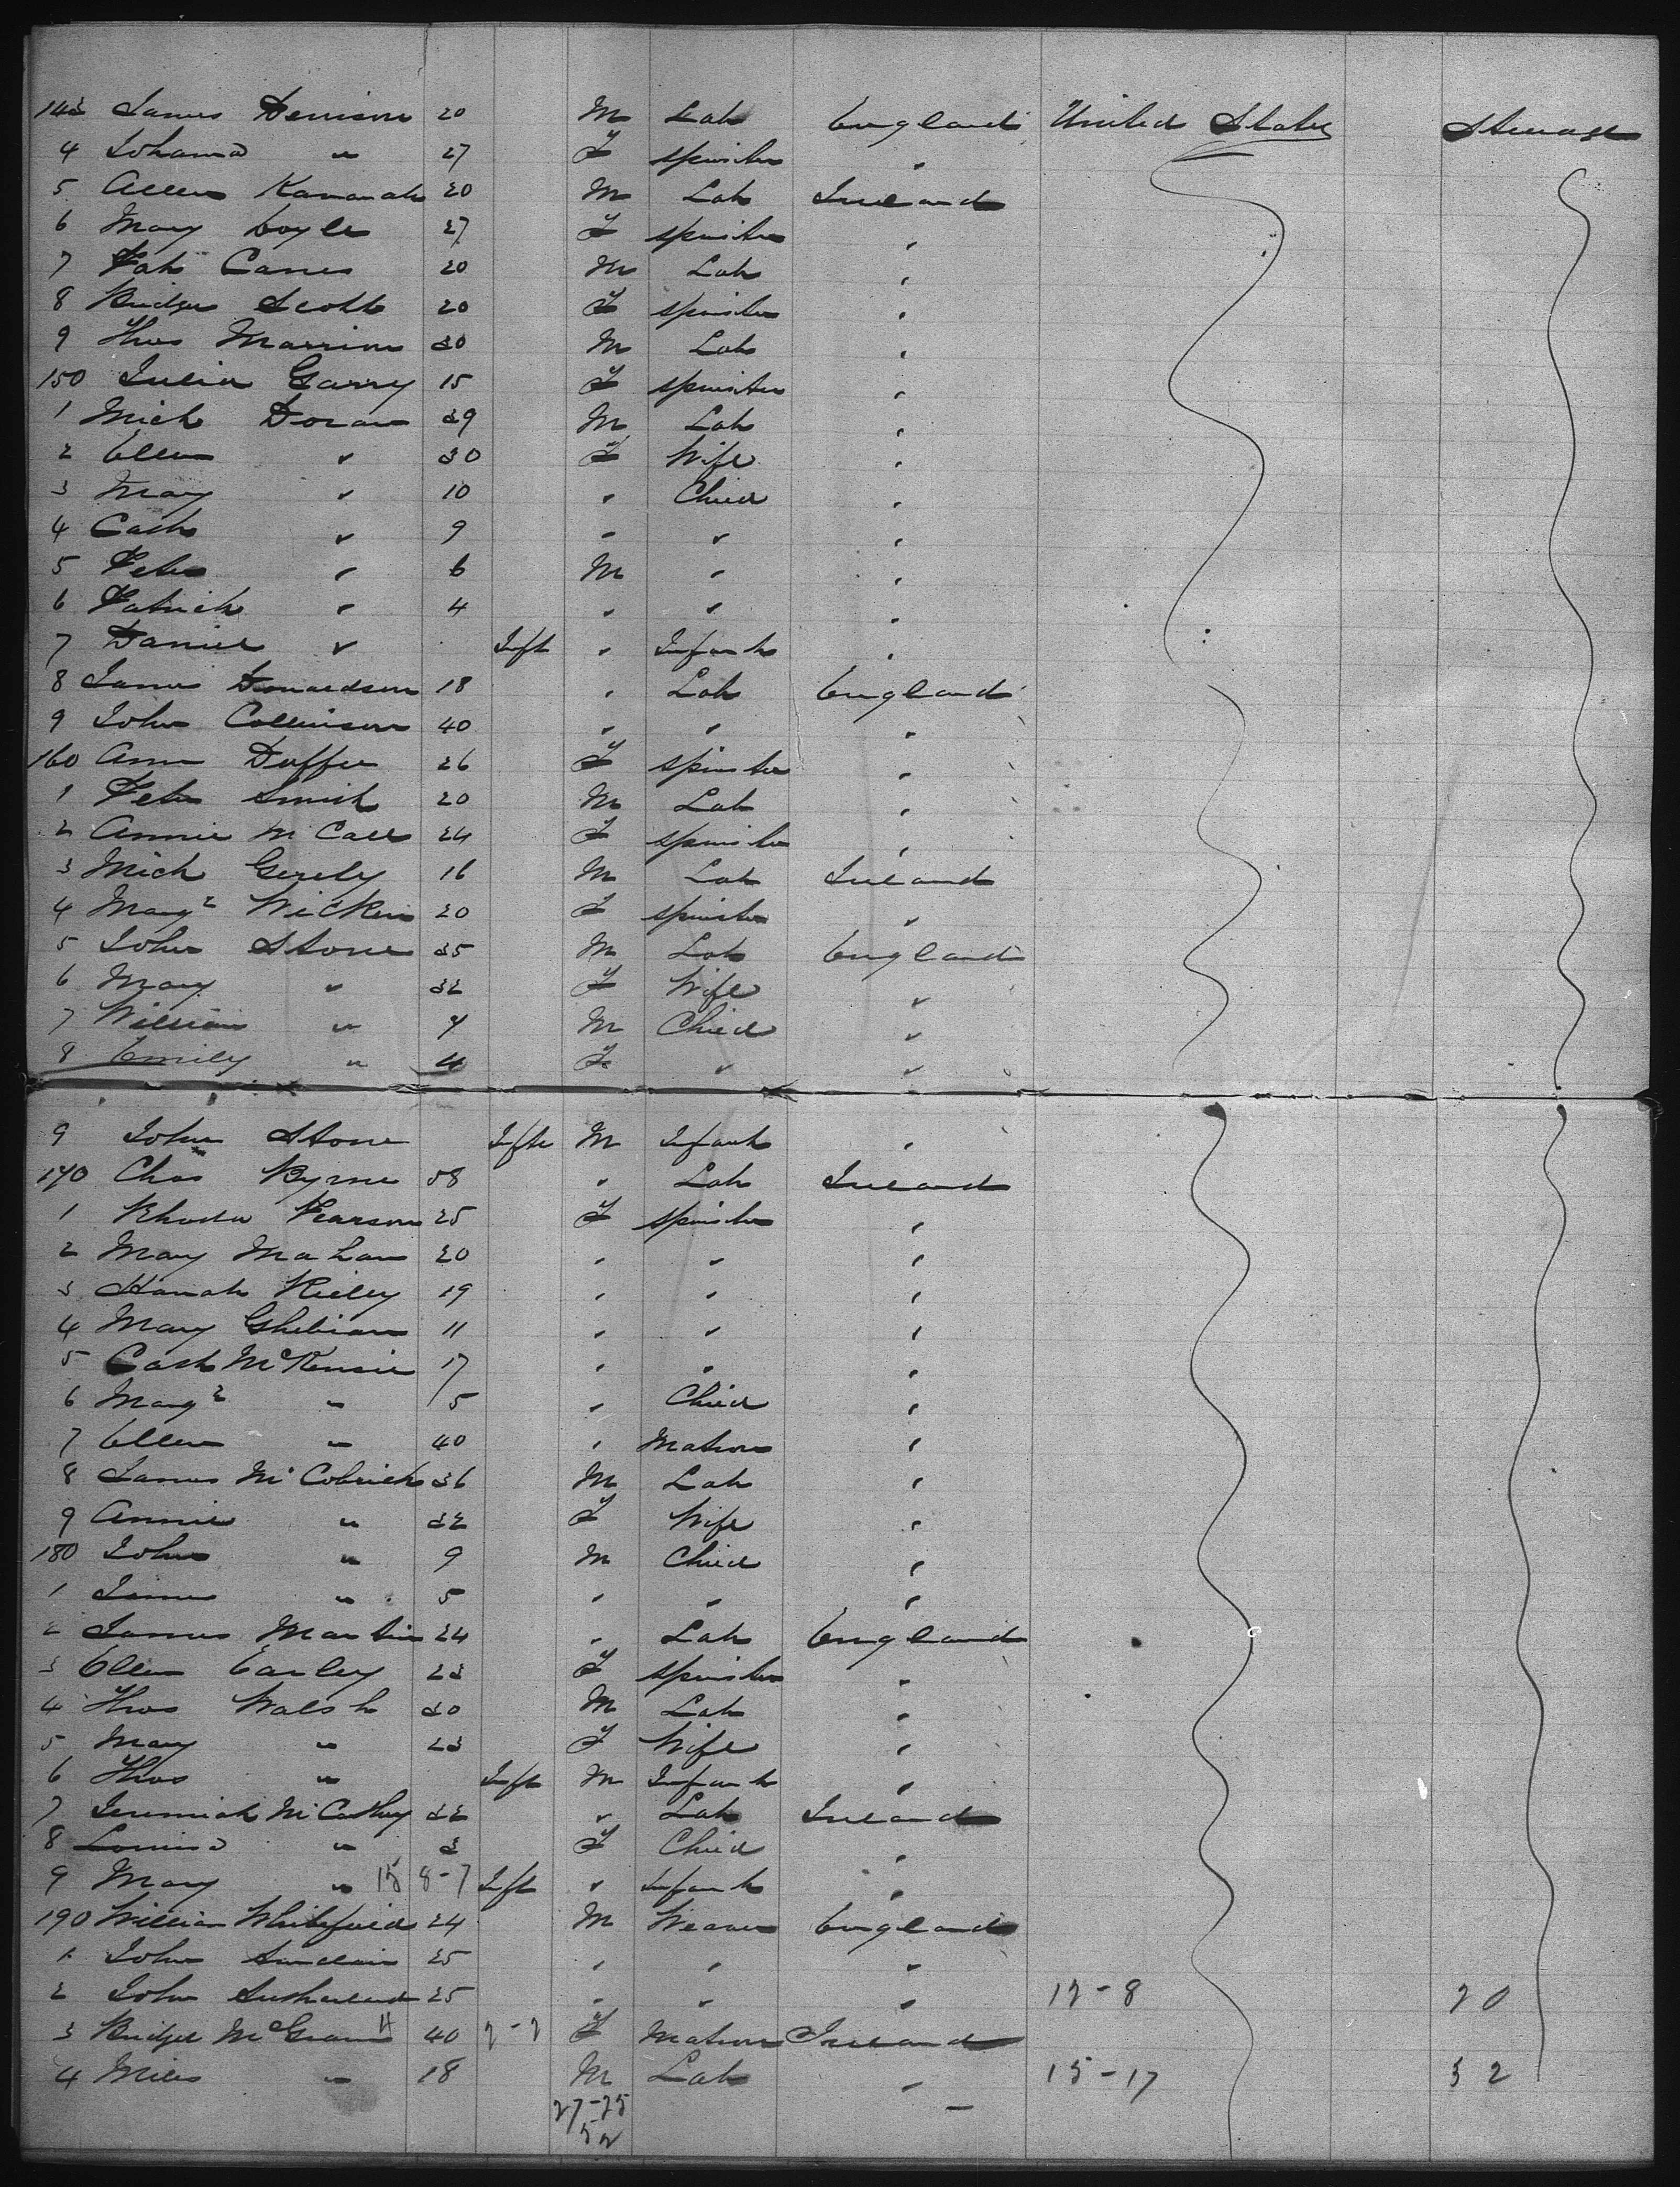 143 James Denison 20 M Lab England United States Steerage
4 Johanna " 27 F spinster "
5 Allen Kavanah 20 M Lab Ireland
6 Mary Doyle 27 F spinster "
7 Pat Canes 20 M Lab "
8 Bridget Scott 20 F spinster "
9 Thos Marrion 30 M Lab "
150 Julia Garry 15 F spinster "
1 Mich Doran 39 M Lab "
2 Ellen " 30 F Wife "
3 Mary " 10 " Child "
4 Cath " 9 " " "
5 Peter " 6 M " "
6 Patrick " 4 " " "
7 Daniel " Inft " Infant "
8 James Donardson 18 " Lab England
9 John Collinson 40 " " "
160 Ann Duffee 26 F spinster "
1 Peter Smith 20 M Lab "
2 Annie McCall 24 F spinster "
3 Mich Gerely 16 M Lab Ireland
4 Margt Wicken 20 F spinster "
5 John Stone 35 M Lab England
6 Mary " 32 F Wife "
7 William " 7 M Child "
8 Emily " 4 F " "
9 John Stone Infts M Infant "
170 Chas Byrne 58 " Lab Ireland
1 Rhoda Pearson 25 F spinster "
2 Mary Mahan 20 " " "
3 Hanah Rieley 19 " " "
4 Mary 11 " " "
5 Cath McKensie 17 " " "
6 Margt " 5 " Child "
7 Ellen " 40 " Matron "
8 James McCobrick 36 M Lab "
9 Annie " 32 F Wife "
180 John " 9 M Child "
1 James " 5 " " "
2 James Martin 24 " Lab England
3 Ellen Earley 23 F spinster "
4 Thos Walsh 30 M Lab "
5 Mary " 23 F Wife "
6 Thos " Inft M Infant "
7 Jeremiah McCarthy 32 " Lab Ireland
8 Louisa " 3 F Child "
9 Mary " 15 8-7 Inft " Infant "
190 William Whitefield 24 M Weaver England
1 John Sinclair 25 " " "
2 John Sutherland 25 " " " 12-8 20
3 Bridget McGrann 4 40 2-2 F Matron Ireland
4 Miles " 18 M Lab " 15-17 32
27-25
52